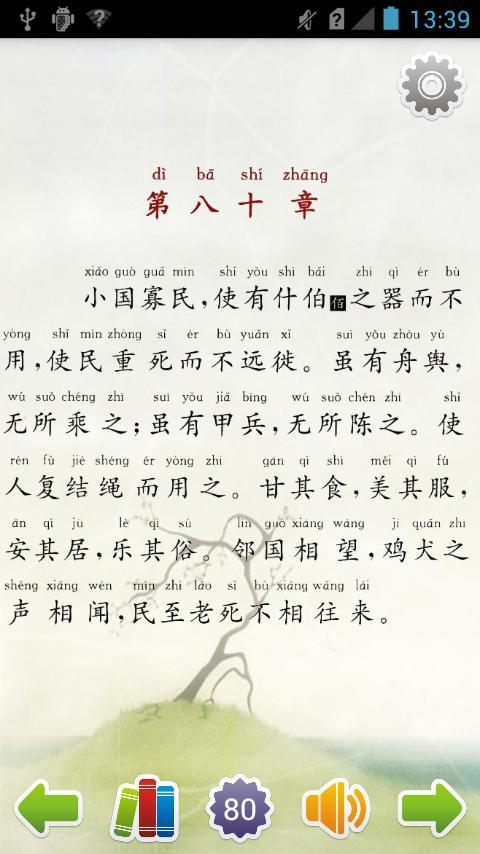 13:39
dì bā shí zhāng
第八十章
xiǎo guò guǎ mín shǐ yǒu shí bǎi zhī qì ér bù
小国寡民,使有什伯佰之器而不
yòng shǐ mín zhòng sǐ ér bù yuǎn xǐ suī yǒu zhōu yú
用,使民重死而不远徙。虽有舟舆,
wú suǒ chéng zhī suī yǒu jiǎ bīng wú suǒ chén zhī shǐ
无所乘之;虽有甲兵,无所陈之。使
rén fù jié shéng ér yòng zhī gān qí shí měi qí fú
人复结绳而用之。甘其食,美其服,
ān qí jū lè qí sú lín guó xiāng wàng jī quǎn zhī
安其居,乐其俗。邻国相望,鸡犬之
shēng xiāng wén mín zhì lǎo sǐ bù xiāng wǎng lái
声相闻,民至老死不相往来。
80